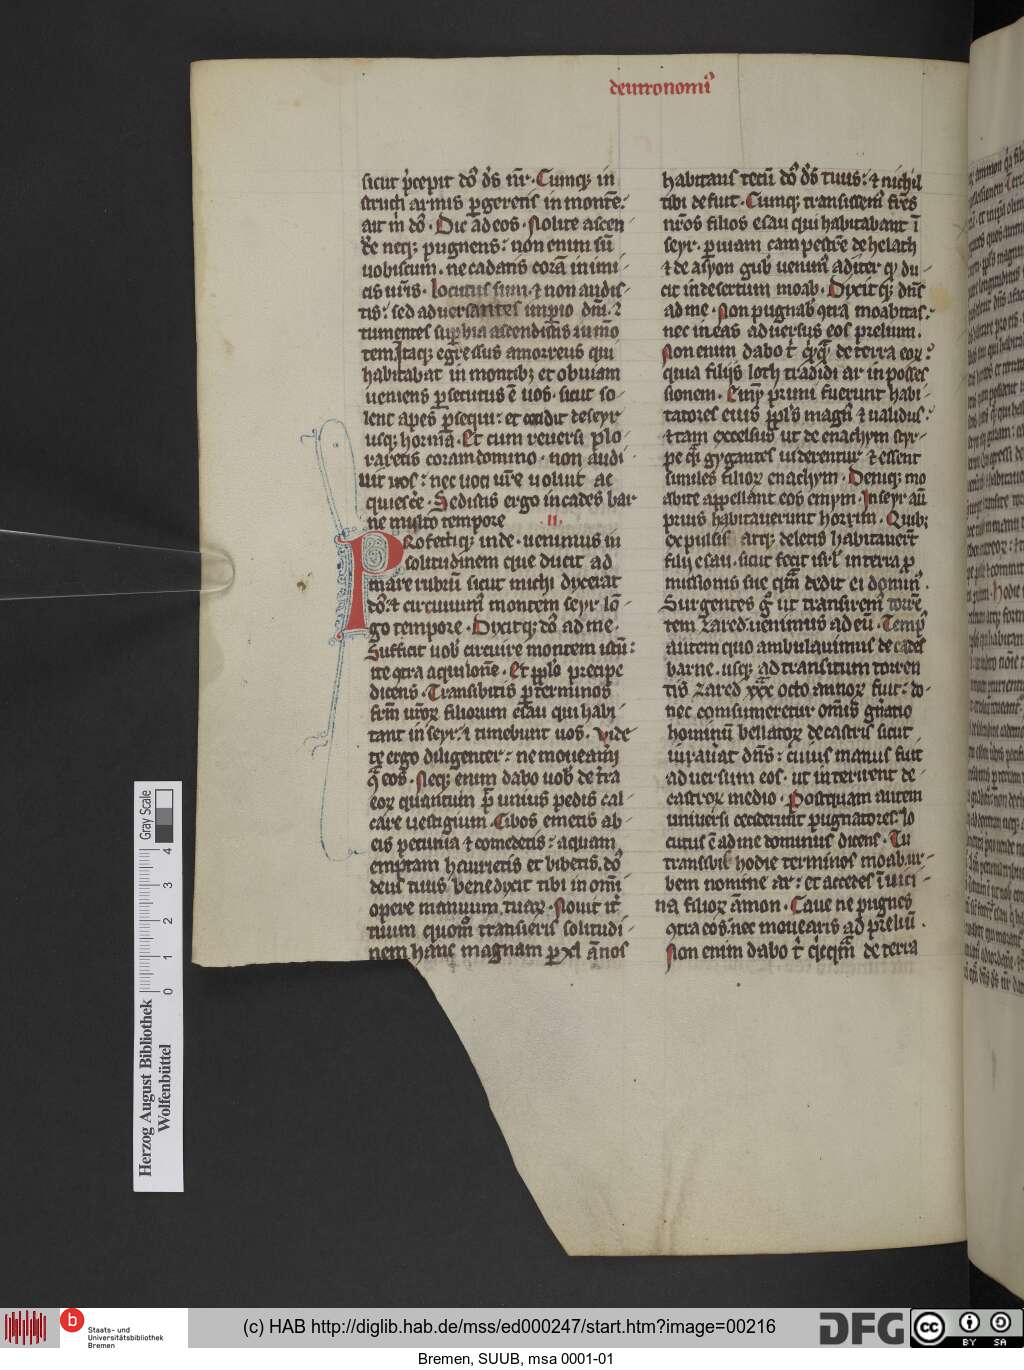 deutronomi᾽
sicut p̄cepit dō d̄s n̄r. Cumq; in
structi armis p̄geretis in montē.
ait m̄ dō. Dic ad eos. Nolite ascen
d̄e neq; pugnetis: non enim sū
uobiscum. ne cadatis corā inimi
cis ur̄is. locutus sum. ⁊ non audis
tis: sed aduersantes impio dn̄i. ⁊
tumentes sup̄bia ascendistis in mō
tem. Itaq; egressus amorreus qui
habitabat in montib; et obuiam
ueniens p̄secutus ē uos. sicut so
lent apes p̄sequi: et cecidit de seyr
usq; hormā. Et cum reuersi plo
raretis coram domino. non audi
uit uos: nec uoci ur̄e uoluit ac
quiesc̄e. Sedistis ergo in cades bar
ne multo tempore .II.
PRofectiq; inde. uenimus in
solitudinem que ducit ad
mare rubrū sicut michi dyxerat
dō. ⁊ circuiuim᾽ montem seyr lō
go tempore. Dixitq; dō ad me.
Sufficit uob̄ circuire montem istū:
ite ɔtra aquilonē. Et ppl̄o precipe
dicens. Transibitis p̄ terminos
fr̄m ur̄oꝝ filiorum esau qui habi
tant in seyr. ⁊ timebunt uos. Vide
te ergo diligenter: ne moueam̄i
ɔ̄ eos. Neq; enim dabo uob̄ de tr̄a
eoꝝ quantum p̄t unius pedis cal
care uestigium. Cibos emetis ab
eis pecunia ⁊ comedetis: aquam
emptam haurietis et bibetis. dō
deus tuus benedyxit tibi in omī
opere manuum tuaꝝ. Nouit it̄
tuum quom̄ transieris solitudi
nem hanc magnam p̄ xl an̄nos
habitans tecū dō d̄s tuus: ⁊ nichil
tibi defuit. Cumq; transissem᾽ fr̄es
nr̄os filios esau qui habitabant ī
seyr. p̄ uiam campestrē de helath
⁊ de asyon gub̄ uenim᾽ ad iter qd̄ du
cit in desertum moab. Dyxitq; dn̄s
ad me. Non pugnab᾽ ɔtra moabitas.
nec in eas aduersus eos prelium.
Non enim dabo t̄ q̄cq̄ de terra eoꝝ:
quia filijs loth tradidi ar in posses
sionem. Emy primi fuerunt habi
tatores eius ppl̄s magn᾽ ⁊ ualidus:
⁊ tam excelsus ut de enachym styr
pe q̄i gygantes uiderentur ⁊ essent
similes filioꝝ enachym. Deniq; mo
abite appellant eos emym. In seyr aū
prius habitauerunt horrim. Quib;
expulsis atq; deletis habitauer̄t
filij esau. sicut fecit isr̄l in terra p
missionis sue quā dedit ei domin᾽.
Surgentes ḡ ut transirem᾽ torrē
tem zared. uenimus ad eū. Temp᾽
autem quo ambulauimus de cades
barne. usq; ad transitum torren
tis zared xxx octo annoꝝ fuit: do
nec consumeretur om̄is gn̄atio
hominū bellatoꝝ de castris sicut
iurauat dn̄s: cuius manus fuit
aduersum eos. ut interirent de
castroꝝ medio. Postquam autem
uniuersi ceciderunt pugnatores. lo
cutus ē ad me dominus dicens. Tu
transibis hodie terminos moab. ur
bem nomine ar: et accedes ī uici
na filioꝝ āmon. Caue ne pugnes
ɔtra eos. nec mouearis ad preliū.
Non enim dabo t̄ q̄cq̄m de terra
Gray Scale
4
3
2
1
0
Herzog August Bibliothek
Wolfenbüttel
b
Staats- und
Universitätsbibliothek
Bremen
(c) HAB http://diglib.hab.de/mss/ed000247/start.htm?image=00216
DFG
cc
BY SA
Bremen, SUUB, msa 0001-01